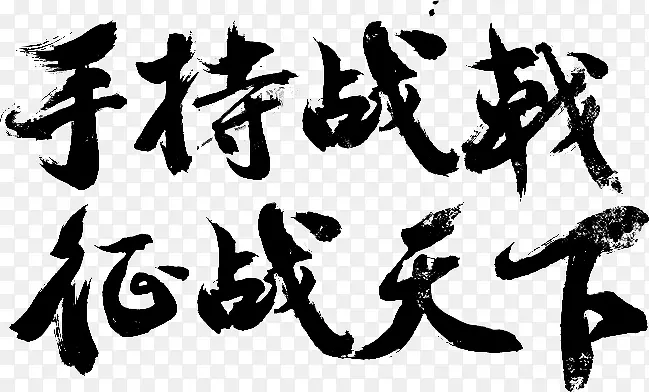 手持战戟
征战天下